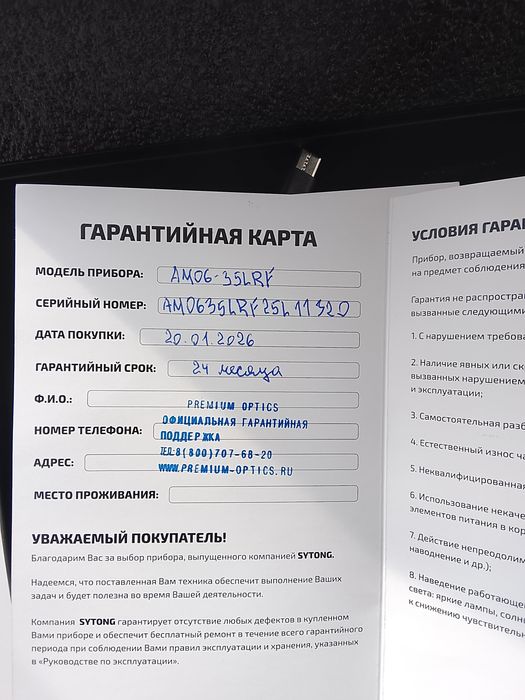 ГАРАНТИЙНАЯ КАРТА
МОДЕЛЬ ПРИБОРА: AM06-35LRF
СЕРИЙНЫЙ НОМЕР: AM0635LRF25L11320
ДАТА ПОКУПКИ: 20.01.2026
ГАРАНТИЙНЫЙ СРОК: 24 месяца
Ф.И.О.:
PREMIUM OPTICS
ОФИЦИАЛЬНАЯ ГАРАНТИЙНАЯ
НОМЕР ТЕЛЕФОНА: ПОДДЕРЖКА
ТЕЛ:8(800)707-68-20
АДРЕС: WWW.PREMIUM-OPTICS.RU
МЕСТО ПРОЖИВАНИЯ:
УВАЖАЕМЫЙ ПОКУПАТЕЛЬ!
Благодарим Вас за выбор прибора, выпущенного компанией SYTONG.
Надеемся, что поставленная Вам техника обеспечит выполнение Ваших
задач и будет полезна во время Вашей деятельности.
Компания SYTONG гарантирует отсутствие любых дефектов в купленном
Вами приборе и обеспечит бесплатный ремонт в течение всего гарантийного
периода при соблюдении Вами правил эксплуатации и хранения, указанных
в «Руководстве по эксплуатации».
УСЛОВИЯ ГАРАН
Прибор, возвращаемый
на предмет соблюдения
Гарантия не распростра
вызванные следующими
1. С нарушением требова
2. Наличие явных или ск
вызванных нарушением
и эксплуатации;
3. Самостоятельная разб
4. Естественный износ ча
5. Неквалифицированная
6. Использование некаче
элементов питания в кор
7. Действие непреодолим
наводнение и др.);
8. Наведение работающе
света: яркие лампы, солн
к снижению чувствитель